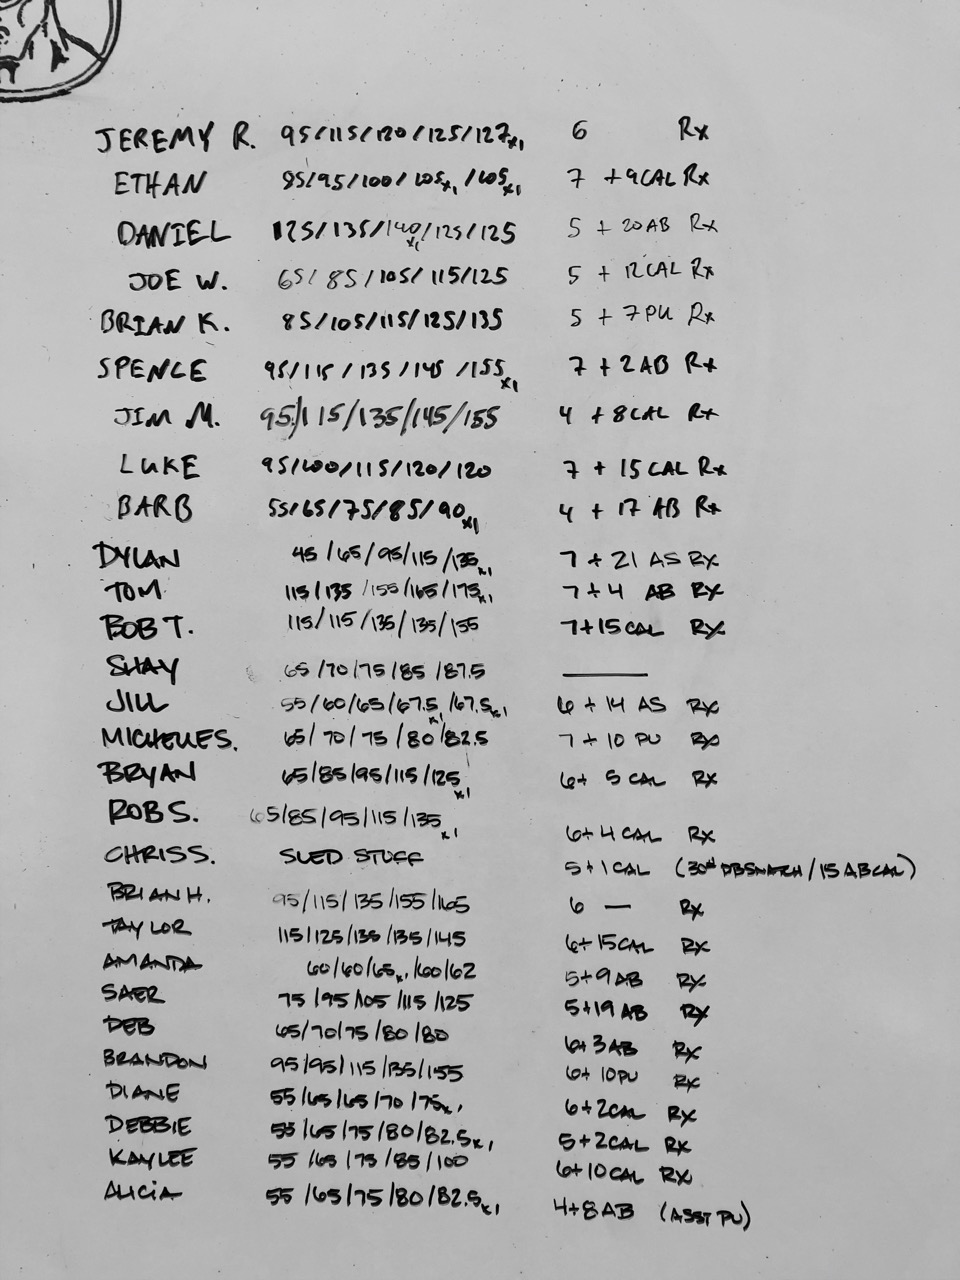 JEREMY R. 95/115/120/125/127x1 6 Rx
ETHAN 85/95/100/105x1/105x1 7 +9CAL Rx
DANIEL 125/135/140x1/125/125 5 + 20AB Rx
JOE W. 65/85/105/115/125 5 + 12CAL Rx
BRIAN K. 85/105/115/125/135 5 + 7PU Rx
SPENCE 95/115/135/145/155x1 7 + 2AB Rx
JIM M. 95/115/135/145/155 4 + 8CAL Rx
LUKE 95/100/115/120/120 7 + 15CAL Rx
BARB 55/65/75/85/90x1 4 + 17 AB Rx
DYLAN 45/65/95/115/135x1 7 + 21 AS Rx
TOM 115/135/155/165/175x1 7+4 AB Rx
BOB T. 115/115/135/135/155 7+15CAL Rx
SHAY 65/70/75/85/87.5 ——
JILL 55/60/65/67.5x1/67.5x1 6+14 AS Rx
MICHELLE S. 65/70/75/80/82.5 7+10 PU Rx
BRYAN 65/85/95/115/125x1 6+ 5 CAL Rx
ROB S. 65/85/95/115/135x1 6+4 CAL Rx
CHRIS S. SLED STUFF 5+1CAL (30# DBSNATCH/15ABCAL)
BRIAN H. 95/115/135/155/165 6 — Rx
TAYLOR 115/125/135/135/145 6+15CAL Rx
AMANDA 60/60/65x1/60/62 5+9AB Rx
SAER 75/95/105/115/125 5+19AB Rx
DEB 65/70/75/80/80 6+3AB Rx
BRANDON 95/95/115/135/155 6+10PU Rx
DIANE 55/65/65/70/75x1 6+2CAL Rx
DEBBIE 55/65/75/80/82.5x1 5+2CAL Rx
KAYLEE 55/65/75/85/100 6+10CAL Rx
ALICIA 55/65/75/80/82.5x1 4+8AB (ASST PU)